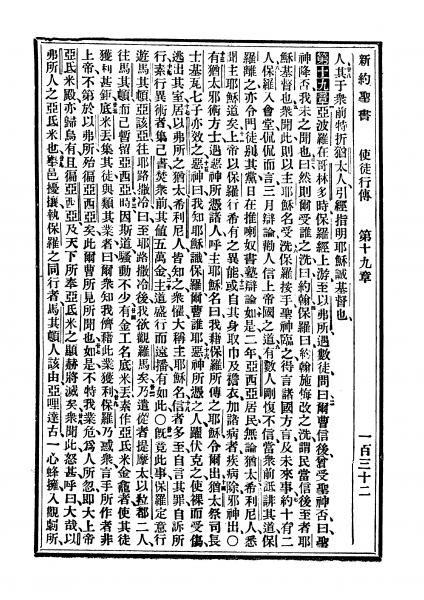 新約聖書 使徒行傳 第十九章 一百三十二
人其于衆前特折猶太人引經指明耶穌誠基督也
第十九章亞波羅在哥林多時保羅經上游至以弗所遇數徒問曰爾曹信後曾受聖神否曰聖
神降否我未之聞也曰然則爾受誰之洗曰約翰保羅曰約翰施悔改之洗謂民當信後至者耶
穌基督也衆聞此則以主耶穌名受洗保羅按手聖神臨之得言諸國方言及未來事約十有二
人保羅入會堂侃侃而言三月辯論勸人信上帝國之道有數人剛愎不信當衆前誣謗其道保
羅離之亦令門徒別其黨日在推喇奴書塾辯論如是二年亞西亞居民無論猶太希利尼人悉
聞主耶穌道矣上帝以保羅行希有之異能或自其身取巾及襜衣加諸病者疾病除邪神出〇
有猶太邪術方士遇惡神所憑諸人呼主耶穌名曰我藉保羅所傳之耶穌令爾出猶太祭司長
士基瓦七子亦效之惡神曰我知耶穌識保羅爾曹誰耶惡神所憑之人躍伏克之使裸而受傷
逃出其室居以弗所之猶太希利尼人皆知之衆懼大稱主耶穌名信者多至自言其罪自訴所
行素行異術者集己書焚衆前其値五萬金主道盛行而遠播有如此〇旣竟此事保羅定意行
遊馬其頓亞該亞往耶路撒冷曰至耶路撒冷後我欲觀羅馬矣乃遣從者提摩太以拉都二人
往馬其頓而己暫留亞西亞時因斯道騷動不少有金工名底米丟素作亞氐米金龕者使其徒
獲利甚鉅底米丟集其徒與類其業者曰爾衆知我儕藉此業獲利保羅乃惑衆言手所作者非
上帝不第於以弗所殆徧亞西亞矣此爾曹所見所聞也如是不特我業危爲人所忽卽大上帝
亞氐米殿亦歸烏有且徧亞西亞及天下所奉亞氐米之顯赫將滅矣衆聞此怒甚呼曰大哉以
弗所人之亞氐米也舉邑擾攘執保羅之同行者馬其頓人該由亞哩達古一心蜂擁入觀劇所